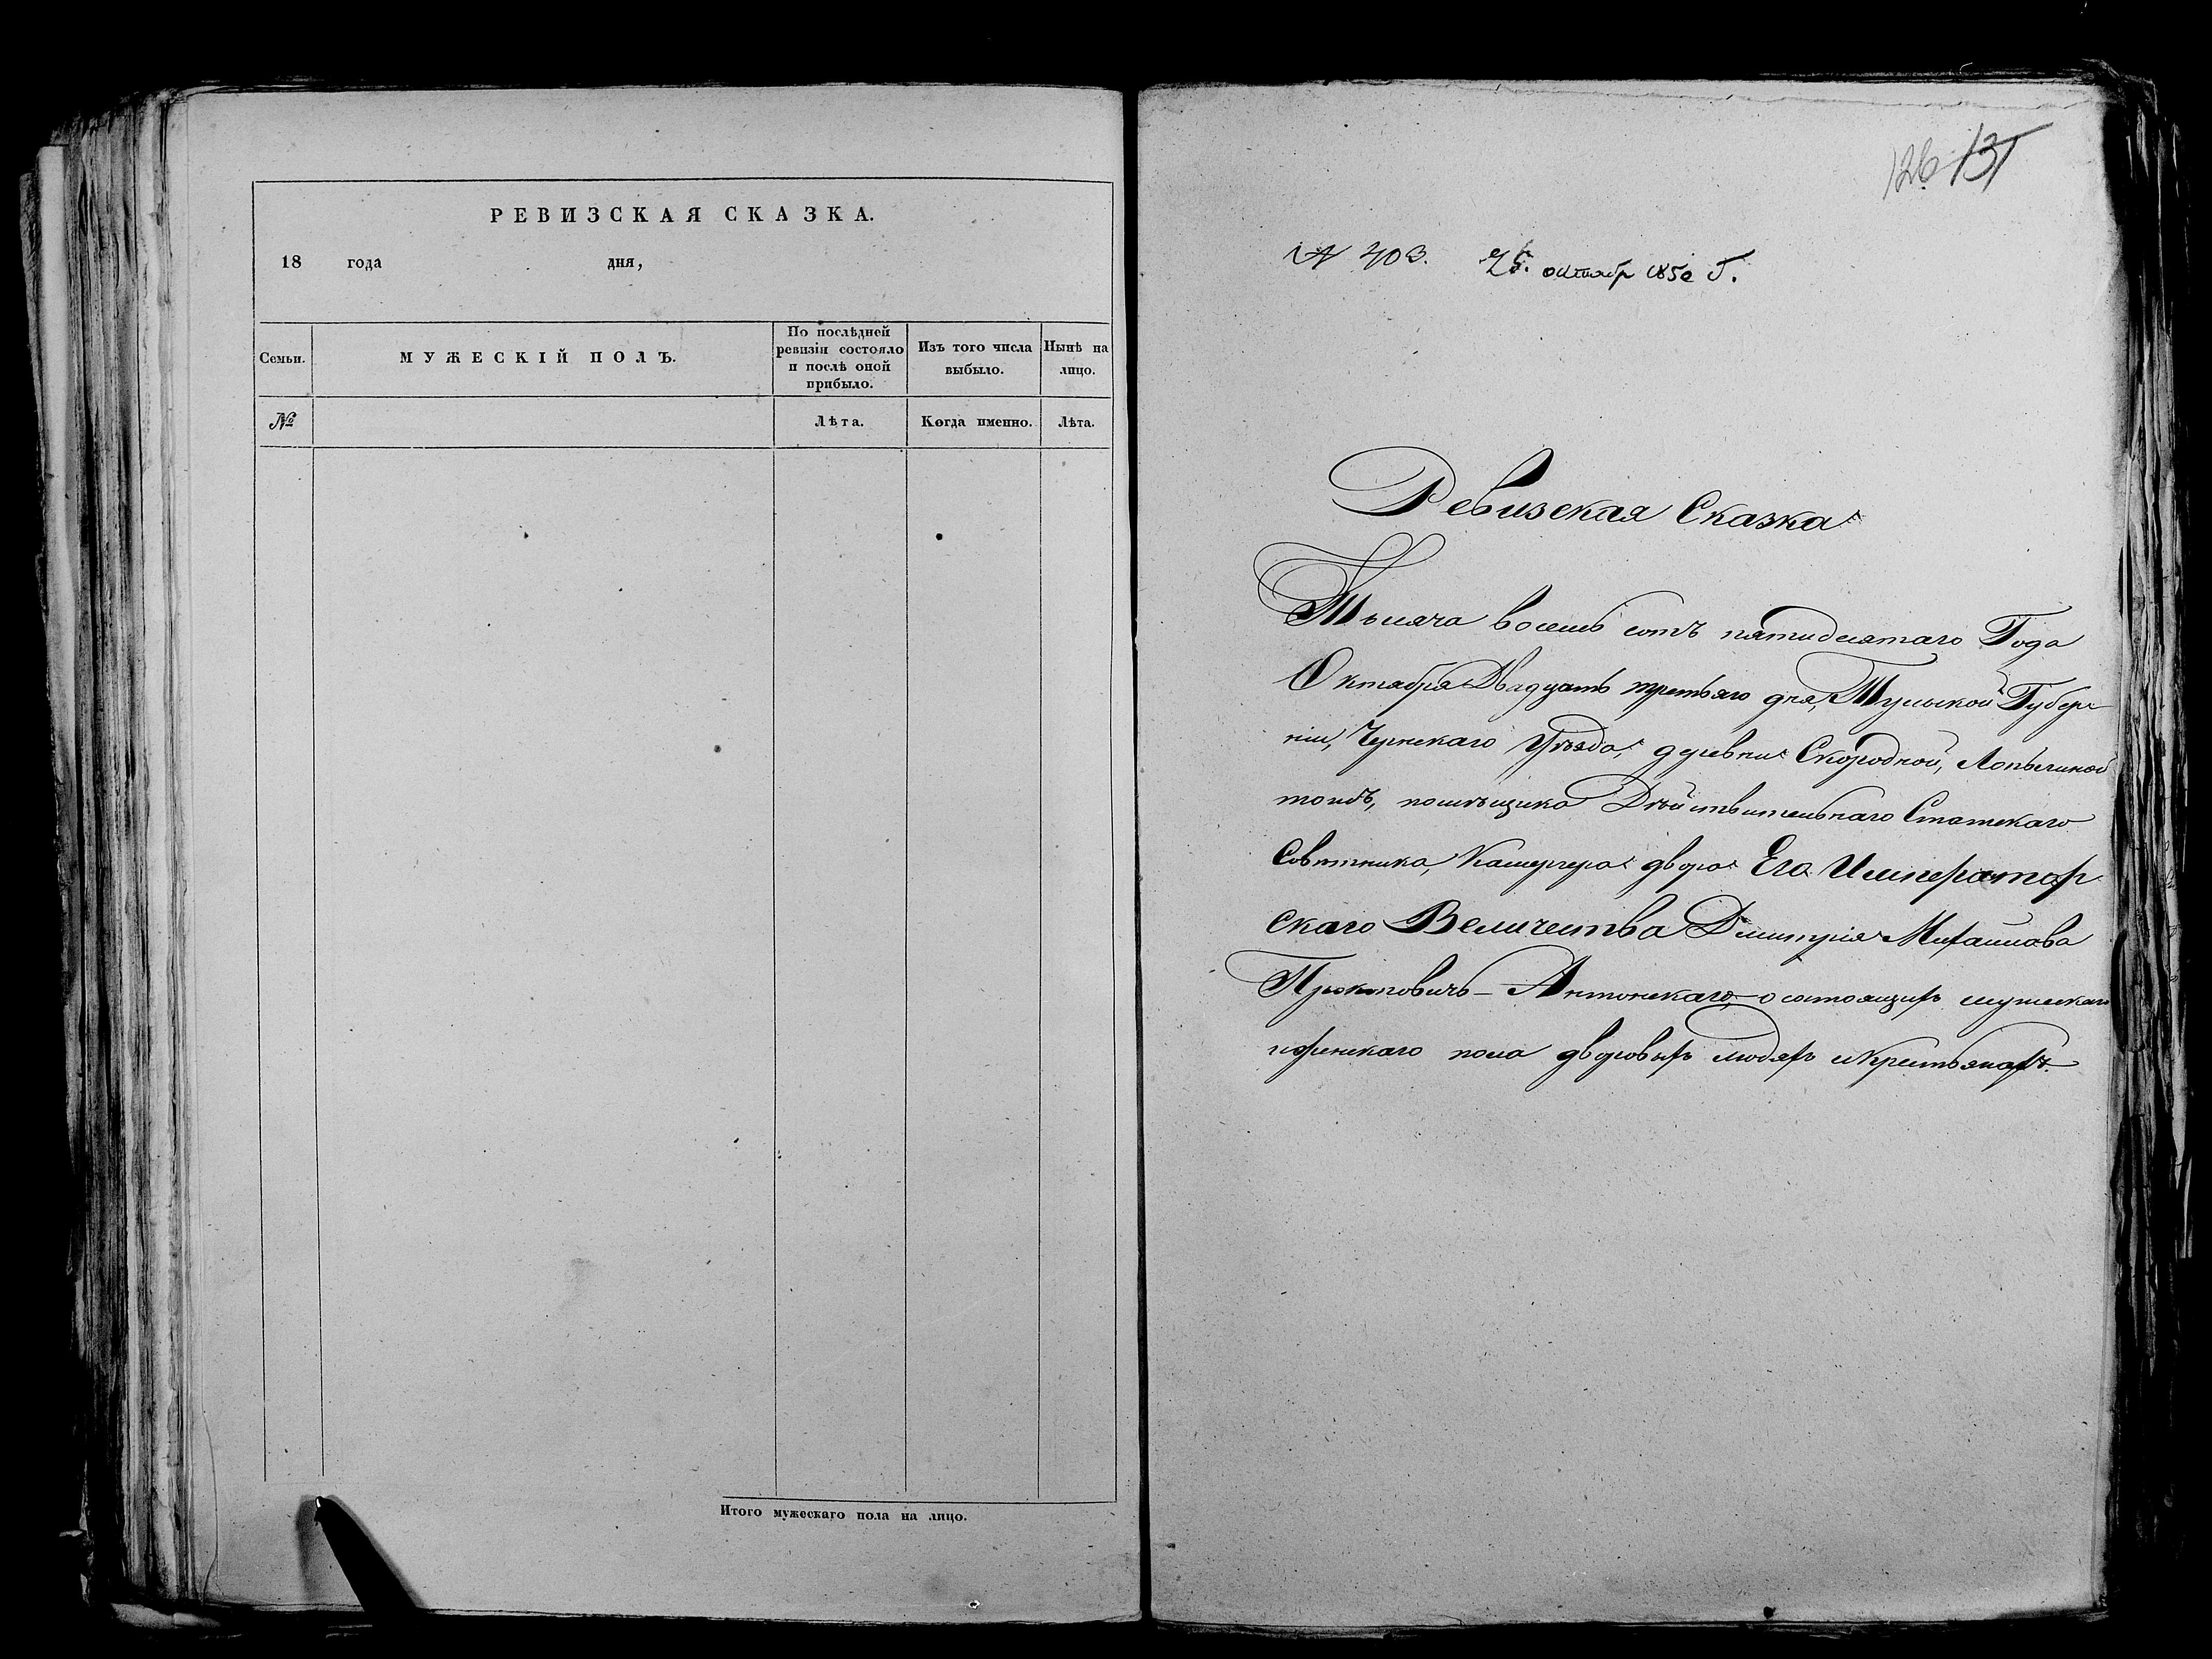 РЕВИЗСКАЯ СКАЗКА.
18 года дня,
Семьи.
МУЖЕСКІЙ ПОЛЪ.
По послѣдней
ревизіи состояло
и послѣ оной
прибыло.
Изъ того числа
выбыло.
Нынѣ на
лицо.
№
Лѣта.
Когда именно.
Лѣта.
Итого мужескаго пола на лицо.
126 131
№ 403. октябр 1850 Г.
Ревизская Сказка
Тысяча восемь сотъ пятидесятаго Года
Октября Двадцать третьяго дня, Тульской Губер
ніи, Чернскаго Уѣзда, деревни Скородной, Лопыгиной
тожъ, помѣщика Дѣйствительнаго Статскаго
Совѣтника, Камергера двора Его Император
скаго Величества Дмитрія Михайлова
Прокоповичь-Антонскаго, о состоящихъ мужескаго
и женскаго пола дворовыхъ людяхъ и Крестьянахъ.